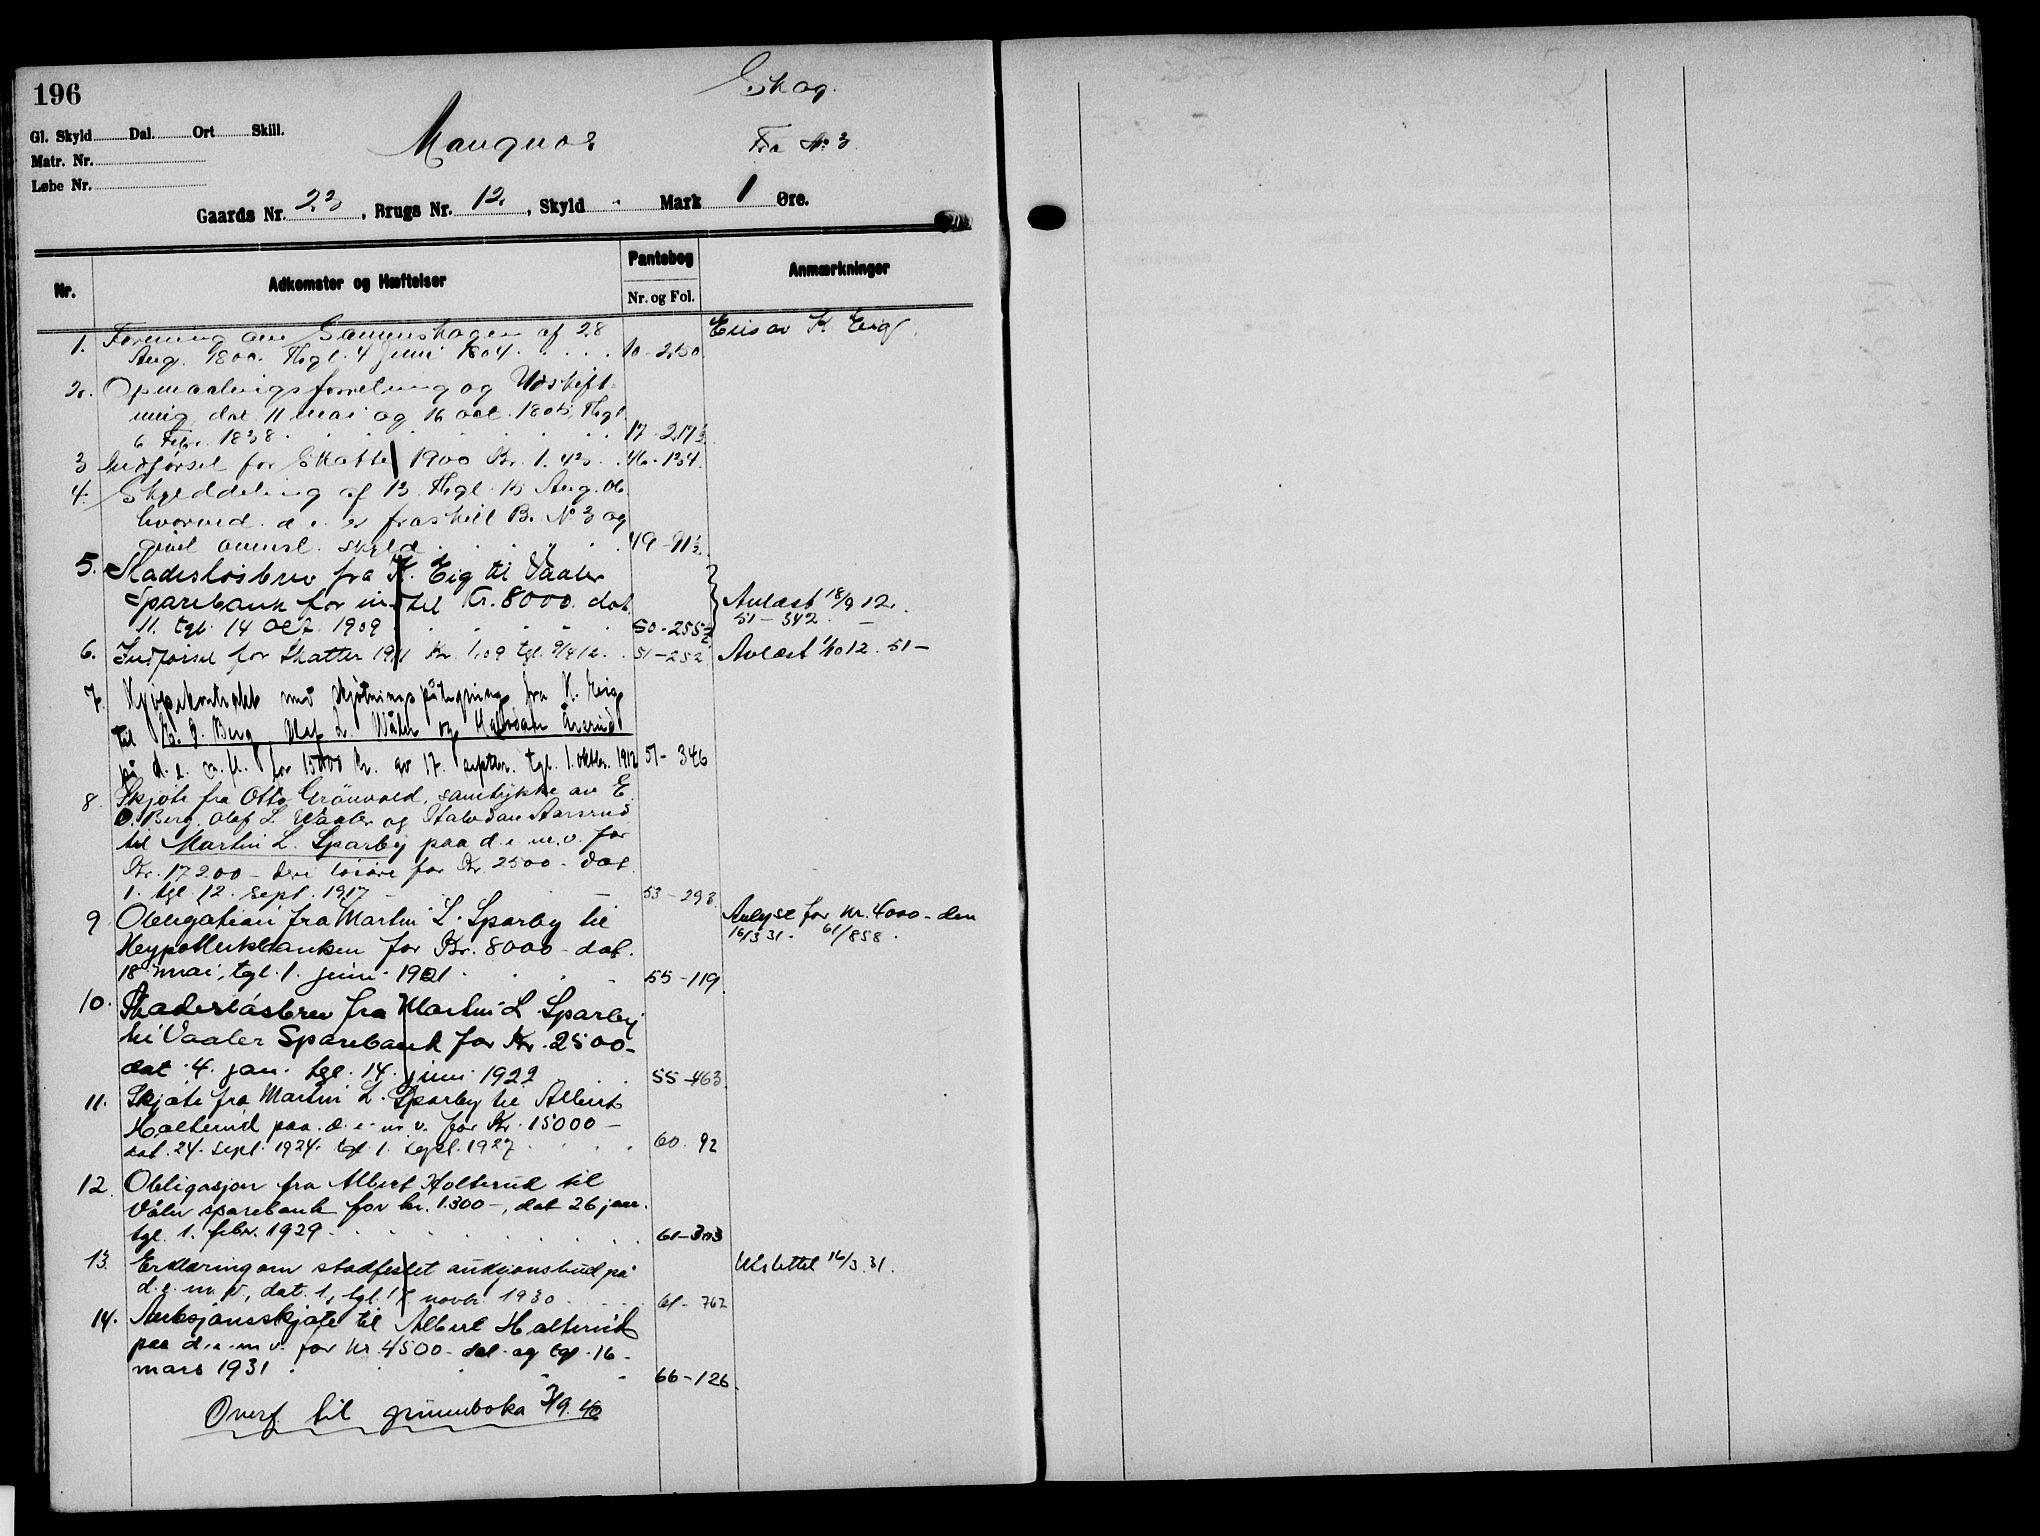 196
Skog.
Gl. Skyld Dal. Ort Skill.
Matr. Nr.
Løbe Nr.
Mangnor
Fra Nr 3.
Gaards Nr. 23, Brugs Nr. 12, Skyld " Mark 1 Øre.
Nr. Adkomster og Hæftelser Pantebog Nr. og Fol. Anmærkninger
1. Forening om af 28 Eies av K. Eig.
Aug. 1800. Thgl. 4 Juni 1804. 10-250
2. Opmaalingsforretning og Udskift
ning dat. 11 mai og 16 oct. 1805, Thgl
6 Febr. 1838. 17-217½
3 Indførsel for Skatte 1900 Kr. 1.43. 46-134.
4. Skylddeling af 13 Thgl. 15 Aug. 06
hvorved d. e. er fraskilt B. No 3 og
givet skyld 49-91½
5. Skadesløsbrev fra K. Eig til Vaaler
Sparebank for intil Kr. 8000. dat. Avlæst 18/9 12.
11. tgl. 14 Oct. 1909 50-255½ 51-342. —
6. Indførsel for Skatter 1911 Kr. 1,09 tgl. 9/4 12. 51-252 Avlæst 1/10 12. 51-
7. Kjøpekontrakt med skjøtningspåtegning fra K. Eig
til E. O. Berg, Olaf L. Våler og Halvdan Årsrud
på d. e. m. fl. for 15000 Kr. av 17. septbr. tgl. 1. oktbr. 1912 51-346
8. Skjøte fra Otto Grönvold, samtykke av E.
O. Berg, Olaf L. Vaaler og Halvdan Aarsrud
til Martin L. Sparby paa d. e. m. v. for
Kr. 17200 - løsøre for Kr. 2500- dat.
1. tgl. 12. sept. 1917 - 53-293
9 Obligation fra Martin L. Sparby til Avlyst for kr. 4000- den
Hypothekbanken for Kr. 8000- dat. 16/3 31. 61/858.
18 mai, tgl. 1. juni 1921. 55-119.
10. Skadesløsbrev fra Martin L. Sparby
til Vaaler Sparebank for Kr. 2500-
dat. 4. jan. tgl. 14. juni 1922 55-463.
11. Skjøte fra Martin L. Sparby til Albert
Holterud paa d. e. m. v. for Kr. 15000-
dat. 24. sept. 1924. tgl 1. sept. 1927 60-92
12. Obligasjon fra Albert Holterud til
Våler sparebank for kr. 1300-, dat 26 jan.
tgl. 1. febr. 1929. 61-303
13. Erklæring om stadfestet auksjonsbud på Utslettet 16/3. 31.
d. e. m. v., dat. 1., tgl. 17. novbr. 1930 61-762
14. Auksjonsskjøte til Albert Holterud
paa d. e. m v. for Kr. 4500- dat. og tgl. 16-
mars 1931. 66-126.
Overf. til grunnboka 3/9. 40